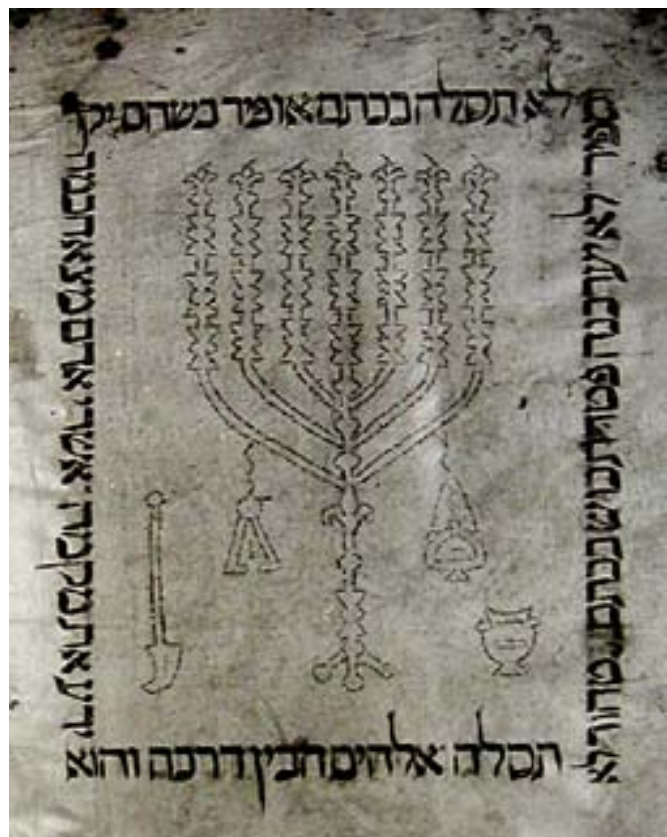 לא תסלה בכתם אופיר בשהם יקר
וספיר לא יערכנה פטדת כוש בכתם טהור לא
תסלה אלהים הבין דרכה והוא
ידע את מקומה אשרי אדם מצא חכמה